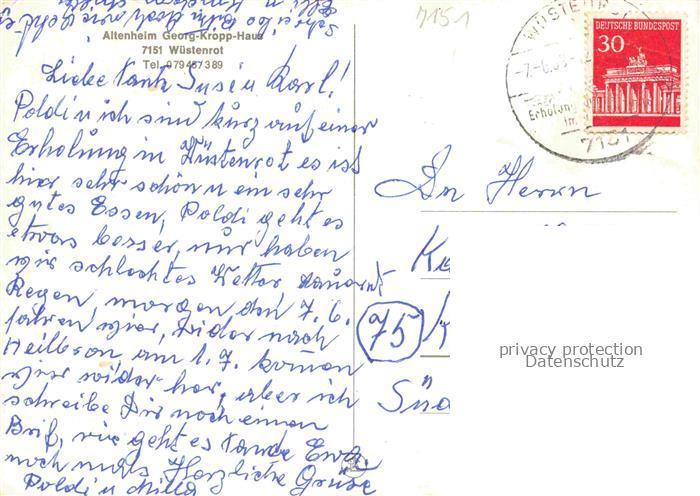 Altenheim Georg-Kropp-Haus
7151 Wüstenrot
Tel. 079457389
Liebe Tante Susi u Karl!
Poldi u ich sind kurz auf einer
Erholung in Wüstenrot es ist
hier sehr schön u ein sehr
gutes Essen, Poldi geht es
etwas besser, nur haben
wir schlechtes Wetter dauernd
Regen morgen den 7. 6.
fahren wir, wider nach
Heilbron am 1. 7. koman
wir wider her, aber ich
schreibe Dir noch einen
Brif, wie geht es Tande
noch mals Herzliche Grüße
Poldi u Milla
7151
WÜSTENR
-7.-6.68-
Erholung
im
7151
DEUTSCHE BUNDESPOST
30
An Herrn
K
75
Süd
privacy protection
Datenschutz